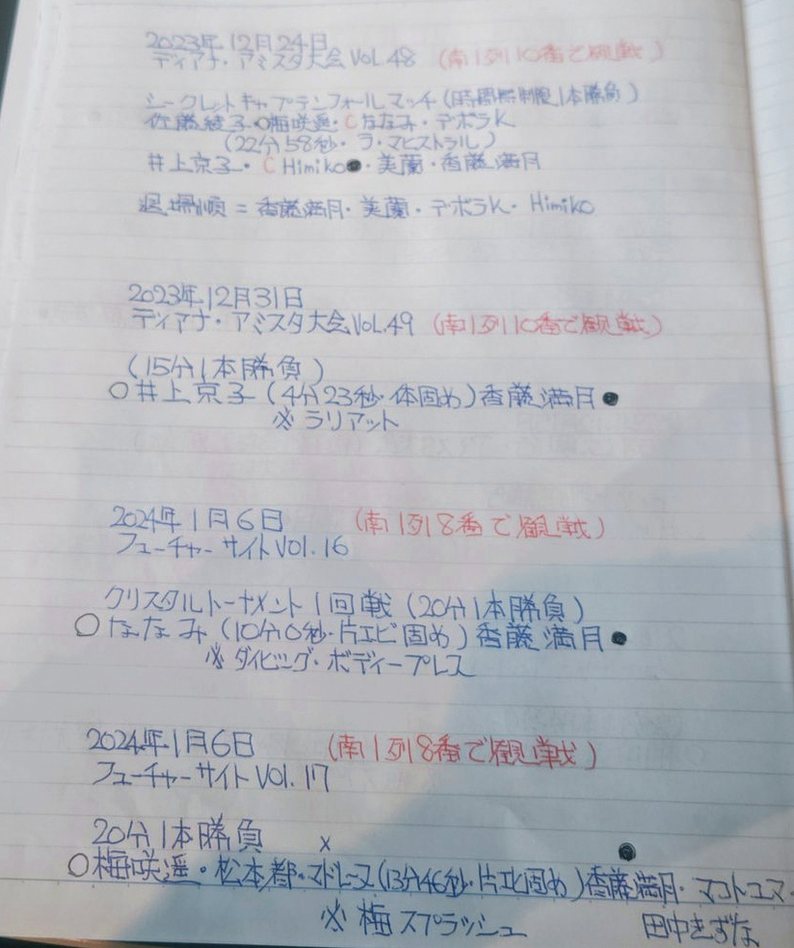 2023年12月24日
ディアナ・アミスタ大会Vol.48 (南1列10番で観戦)
シークレットキャプテンフォールマッチ(時間無制限1本勝負)
佐藤綾子・○梅咲遥・Cななみ・デボラK
(22分58秒・ラ・マヒストラル)
井上京子・C Himiko●・美蘭・香藤満月
退場順=香藤満月・美蘭・デボラK・Himiko
2023年12月31日
ディアナ・アミスタ大会Vol.49 (南1列10番で観戦)
(15分1本勝負)
○井上京子(4分23秒・体固め)香藤満月●
※ラリアット
2024年1月6日 (南1列8番で観戦)
フューチャーサイトVol.16
クリスタルトーナメント1回戦(20分1本勝負)
○ななみ(10分0秒・片エビ固め)香藤満月●
※ダイビング・ボディープレス
2024年1月6日 (南1列8番で観戦)
フューチャーサイトVol.17
20分1本勝負 x
○梅咲遥・松本都・マドレーヌ(13分46秒・片エビ固め)香藤満月●・マコトコマ・
※梅スプラッシュ 田中きずな